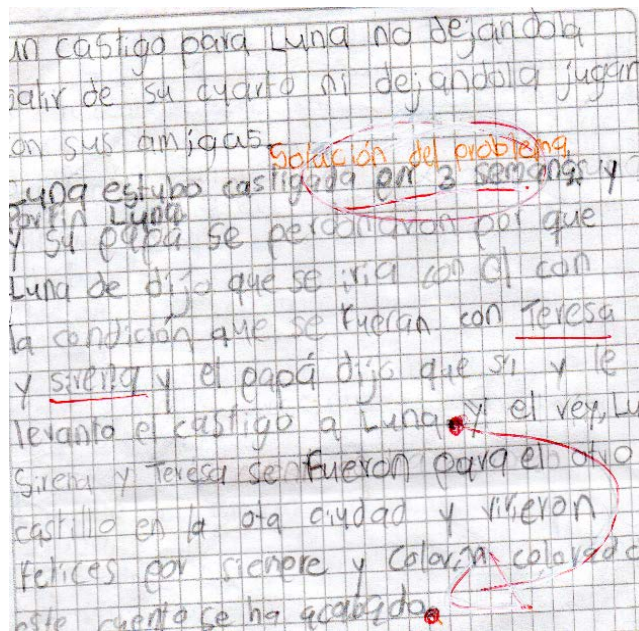 un castigo para Luna no dejandola
salir de su cuarto ni dejandola jugar
on sus amigas.
Solución del problema
Luna estubo castigada en 3 semanas y
Por fin Luna
y su papá se perdonaron por que
Luna de dijo que se iria con el con
la condición que se fueran con Teresa
y sirena y el papá dijo que si y le
levanto el castigo a Luna. y el rey, Lu
Sirena y Teresa se fueron para el otro
castillo en la ota ciudad y vivieron
felices por siempre y colorín colorado
este cuento se ha acabado.